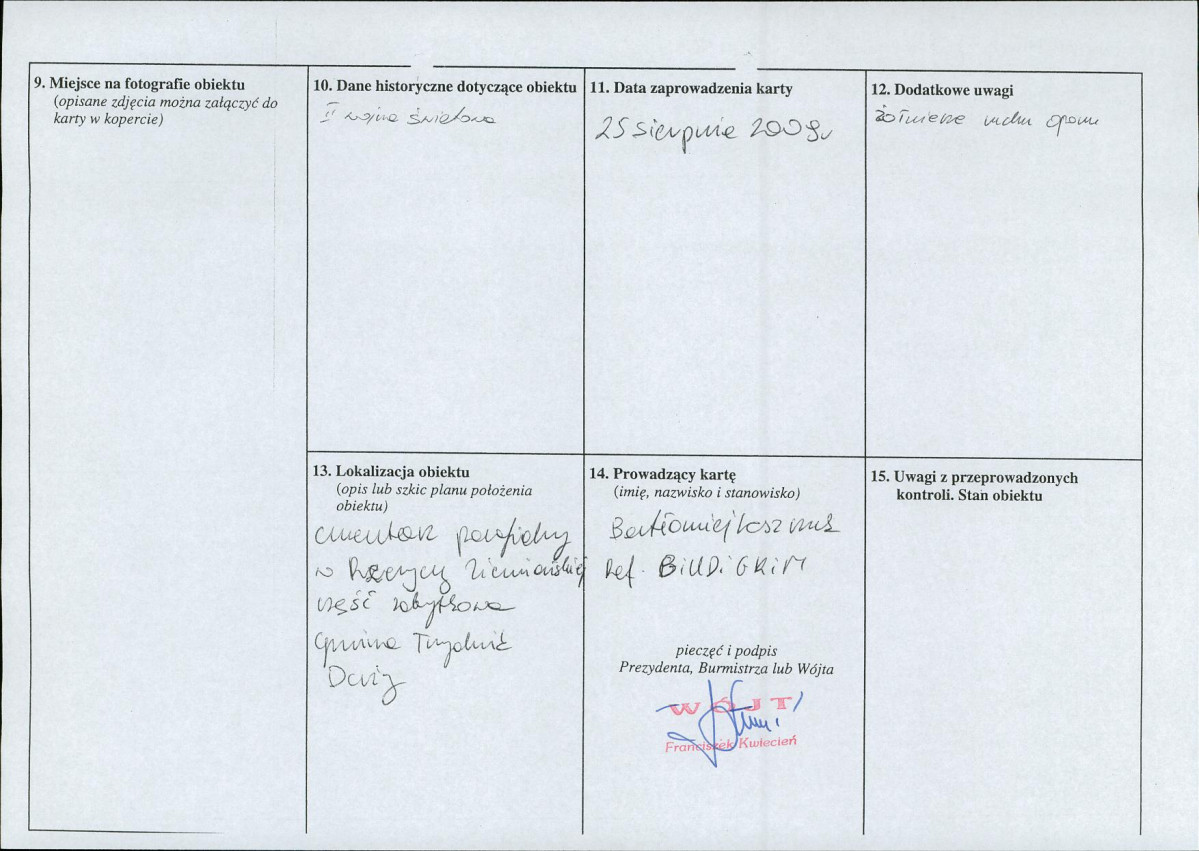 9. Miejsce na fotografie obiektu
(opisane zdjęcia można załączyć do
karty w kopercie)
10. Dane historyczne dotyczące obiektu
II wojna światowa
11. Data zaprowadzenia karty
25 sierpnia 2009r
12. Dodatkowe uwagi
żołnierze ruchu oporu
13. Lokalizacja obiektu
(opis lub szkic planu położenia
obiektu)
cmentarz parafialny
w Rzeczycy Ziemiańskiej
część zabytkowa
Gmina Trzydnik
Duży
14. Prowadzący kartę
(imię, nazwisko i stanowisko)
Bartłomiej
Ref.
pieczęć i podpis
Prezydenta, Burmistrza lub Wójta
WÓJT
Franciszek Kwiecień
15. Uwagi z przeprowadzonych
kontroli. Stan obiektu